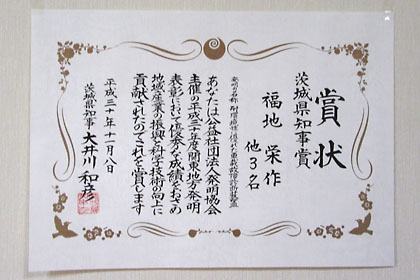 賞状
茨城県知事賞
福地 栄作
他3名
あなたは公益社団法人発明協会
主催の平成三十年度関東地方発明
表彰において優秀な成績をおさめ
地域産業の振興と科学技術の向上に
貢献されたのでこれを賞します
平成三十年十一月八日
茨城県知事 大井川 和彦